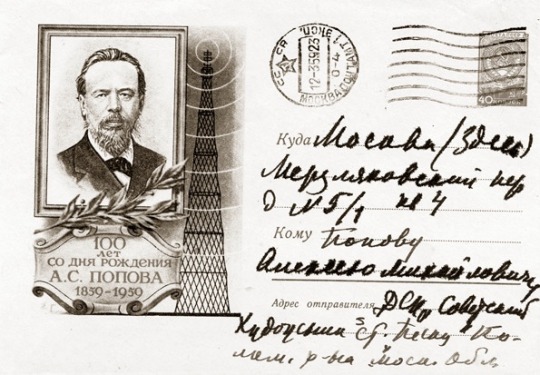 100
ЛЕТ
СО ДНЯ РОЖДЕНИЯ
А.С. ПОПОВА
1859-1959
СССР
12-3 59 23
МОСКВА ПОЧТАМТ
40
Куда Москва (Здесь)
Мерзляковский пер
д N 5/1 кв 4
Кому Попову
Алексею Михайловичу
Адрес отправителя Советский
ст.
р-на Моск. Обл